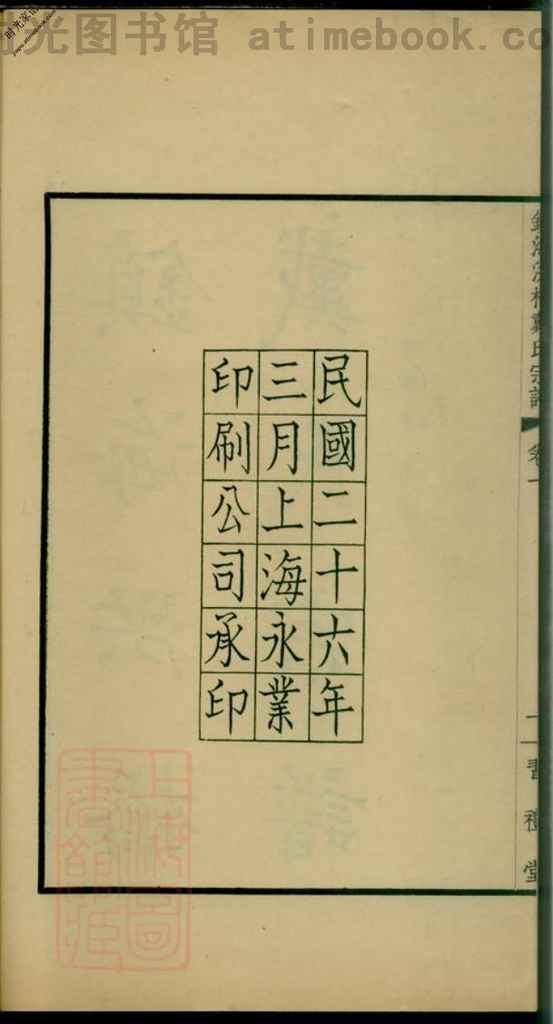 时光图书馆 atimebook.co
民國二十六年
三月上海永業
印刷公司承印
戴氏宗譜
卷一